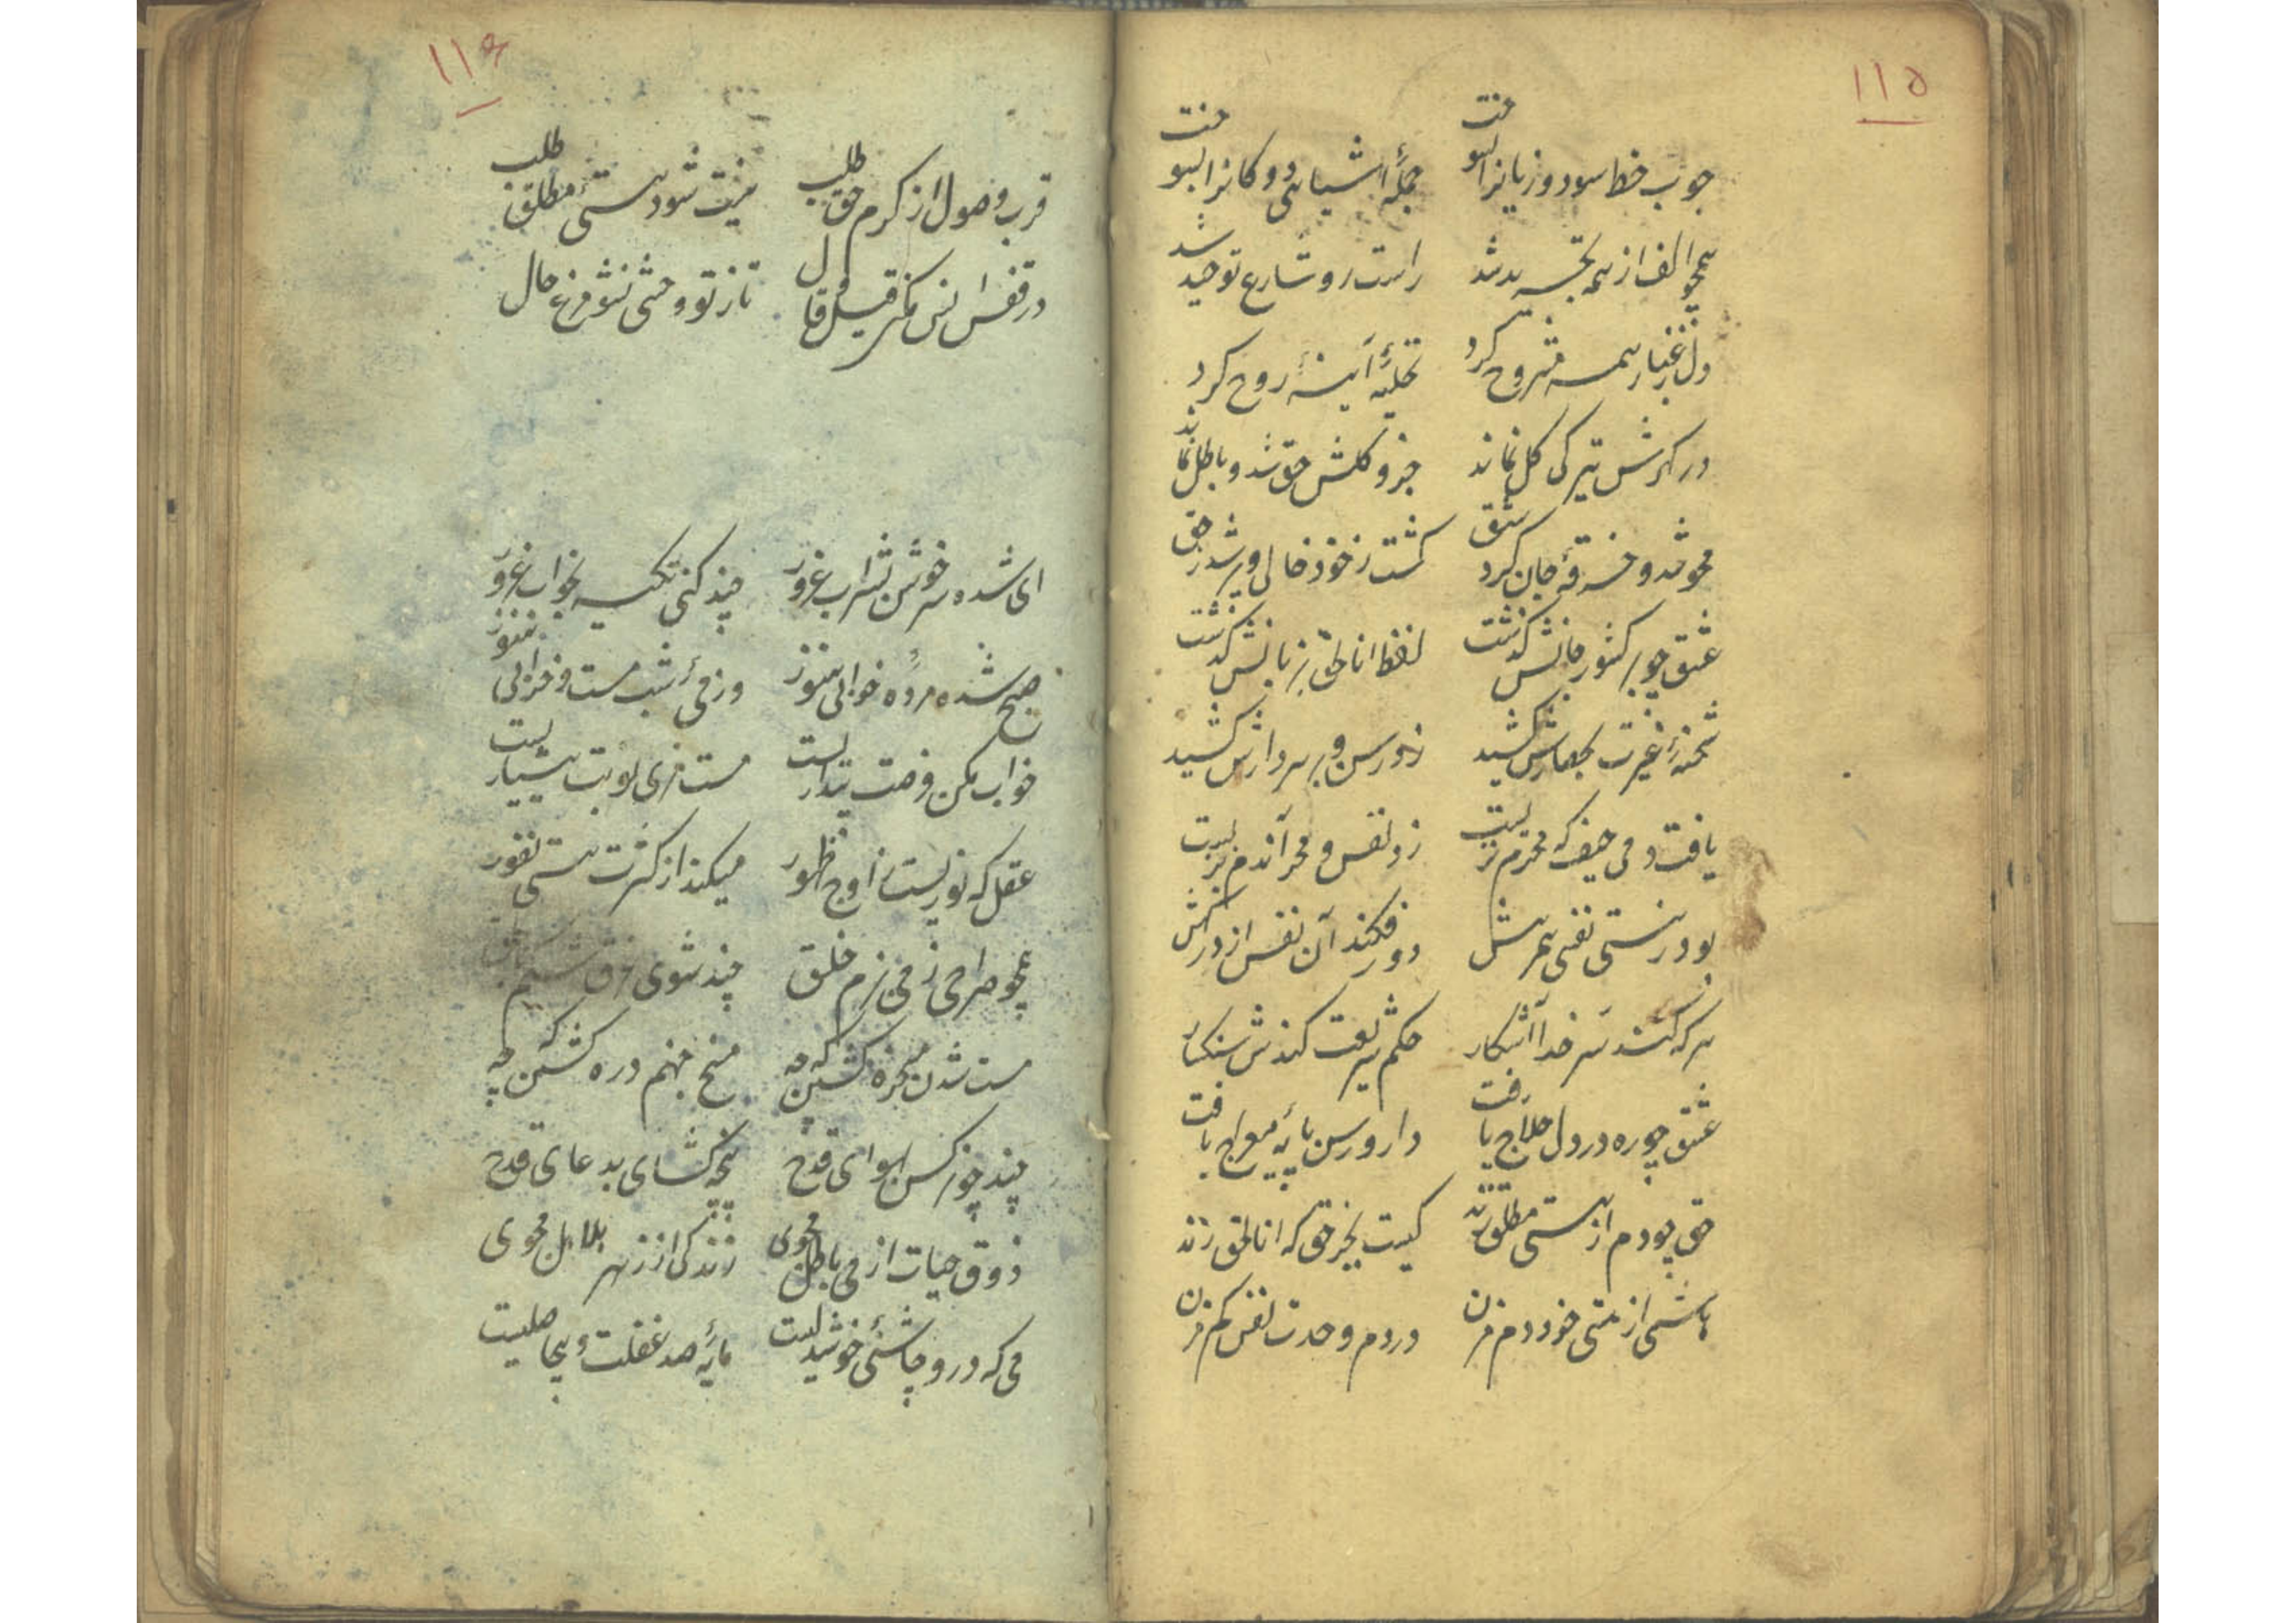 ۱۱۵
چوب خط سود و زیانرا بسوخت جملهٔ اشیای دوکانرا بسوخت
همچو الف از همه تجرید شد راست رو شارع توحید شد
دل ز غبار همه مشروح کرد تخلیهٔ آینهٔ روح کرد
در گهرش تیرگی گل نماند جزو و کلش حق شد و باطل نماند
محو شد و خرقهٔ جان کرد شق گشت ز خود خالی و پر شد ز حق
عشق چو بر کشور جانش گذشت لفظ انا الحق بزبانش گذشت
شحنهٔ غیرت بحصارش کشید زد رسن و بر سر دارش کشید
یافت دمی حیف که محرم نزیست زد نفس و محو آندم نزیست
بود ز هستی نفسی همرهش دور فکند آن نفس از درگهش
هر که کند سر خدا آشکار حکم شریعت کندش سنگسار
عشق چو ره در دل حلاج یافت دار و رسن پایهٔ معراج یافت
حق چو دم از هستی مطلق زند کیست بجز حق که انا الحق زند
هاشمی از هستی خود دم مزن در دم وحدت نفس کم مزن
۱۱۶
قرب وصول از کرم حق طلب نیست شو و هستی مطلق طلب
در قفس انس مکن قیل و قال تا ز تو وحشی نشود مرغ حال
ای شده سرخوش ز شراب غرور چند کنی تکیه بخواب غرور
صبح شده مرده خوابی هنوز وز می شب مست و خرابی هنوز
خواب مکن فرصت بیداریست مست مزی نوبت هشیاریست
عقل که نوریست ز اوج ظهور میکند از کثرت مستی نفور
همچو صراحی ز می بزم خلق چند شوی غرق شکم تا بحلق
مست شدن میخره کشتن که چه مسخ منهم دره کشتن که چه
چند چو نرگس بهوای قدح پنجه گشای بدعای قدح
ذوق حیات از می باطل مجوی زندگی از زهر هلاهل مجوی
می که درو چاشنی خوشدلیست مایهٔ صد غفلت و بیحاصلیست